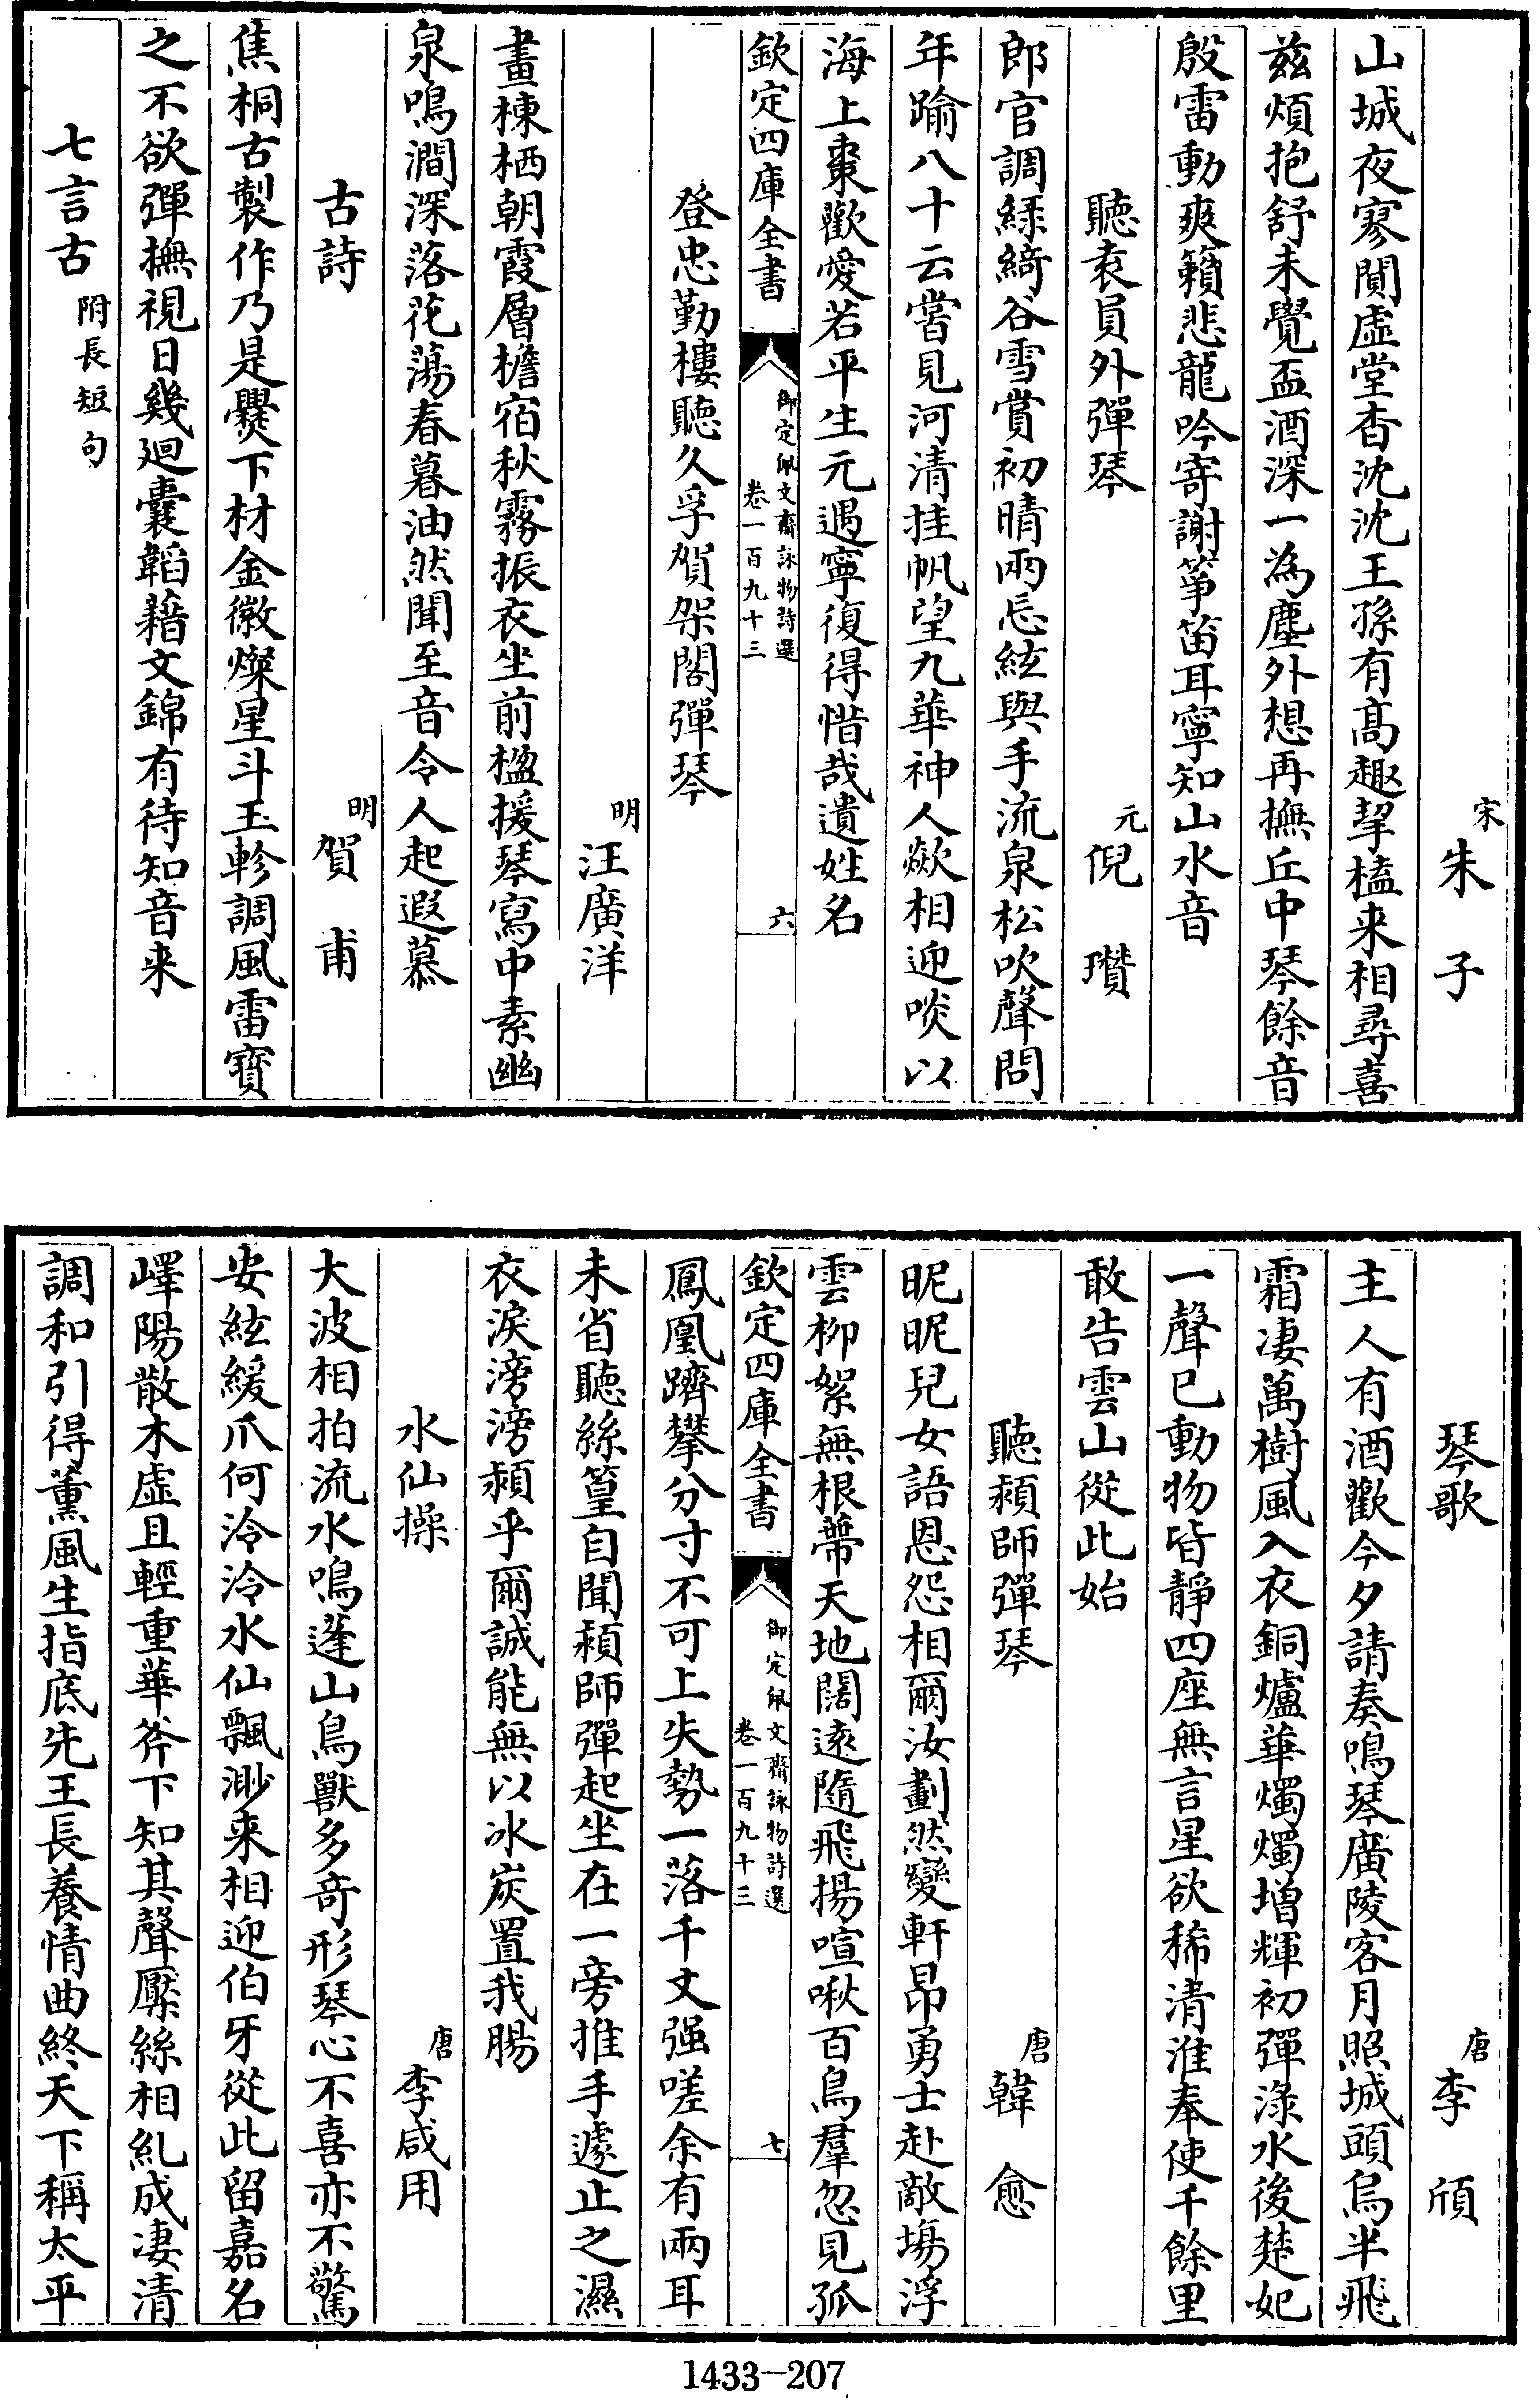 宋朱子
山城夜寥閴虛堂杳沈沈王孫有高趣挈榼来相尋喜
兹煩抱舒未覺盃酒深一為塵外想再撫丘中琴餘音
殷雷動爽籟悲龍吟寄謝箏笛耳寧知山水音
聽袁員外彈琴
元倪瓚
郎官調綠綺谷雪賞初晴兩忘絃與手流泉松吹聲問
年踰八十云嘗見河清挂帆望九華神人歘相迎啖以
海上棗歡愛若平生元遇寧復得惜哉遺姓名
欽定四庫全書
御定佩文齋詠物詩選
卷一百九十三
六
登忠勤樓聽久孚賀架閣彈琴
明汪廣洋
畫棟栖朝霞層檐宿秋霧振衣坐前楹援琴寫中素幽
泉鳴澗深落花蕩春暮油然聞至音令人起遐慕
古詩
明賀甫
焦桐古製作乃是爨下材金徽燦星斗玉軫調風雷寶
之不欲彈撫視日幾廻囊韜藉文錦有待知音来
七言古附長短句
琴歌
唐李頎
主人有酒歡今夕請奏鳴琴廣陵客月照城頭烏半飛
霜淒萬樹風入衣銅爐華燭燭增輝初彈淥水後楚妃
一聲已動物皆靜四座無言星欲稀清淮奉使千餘里
敢告雲山從此始
聽潁師彈琴
唐韓愈
昵昵兒女語恩怨相爾汝劃然變軒昂勇士赴敵場浮
雲柳絮無根蔕天地闊遠隨飛揚喧啾百鳥羣忽見孤
欽定四庫全書
御定佩文齋詠物詩選
卷一百九十三
七
鳳凰躋攀分寸不可上失勢一落千丈强嗟余有兩耳
未省聽絲篁自聞潁師彈起坐在一旁推手遽止之濕
衣淚滂滂潁乎爾誠能無以冰炭置我腸
水仙操
唐李咸用
大波相拍流水鳴蓬山鳥獸多奇形琴心不喜亦不驚
安絃緩爪何泠泠水仙飄渺来相迎伯牙從此留嘉名
嶧陽散木虛且輕重華斧下知其聲檿絲相糺成淒清
調和引得薰風生指底先王長養情曲終天下稱太平
1433-207